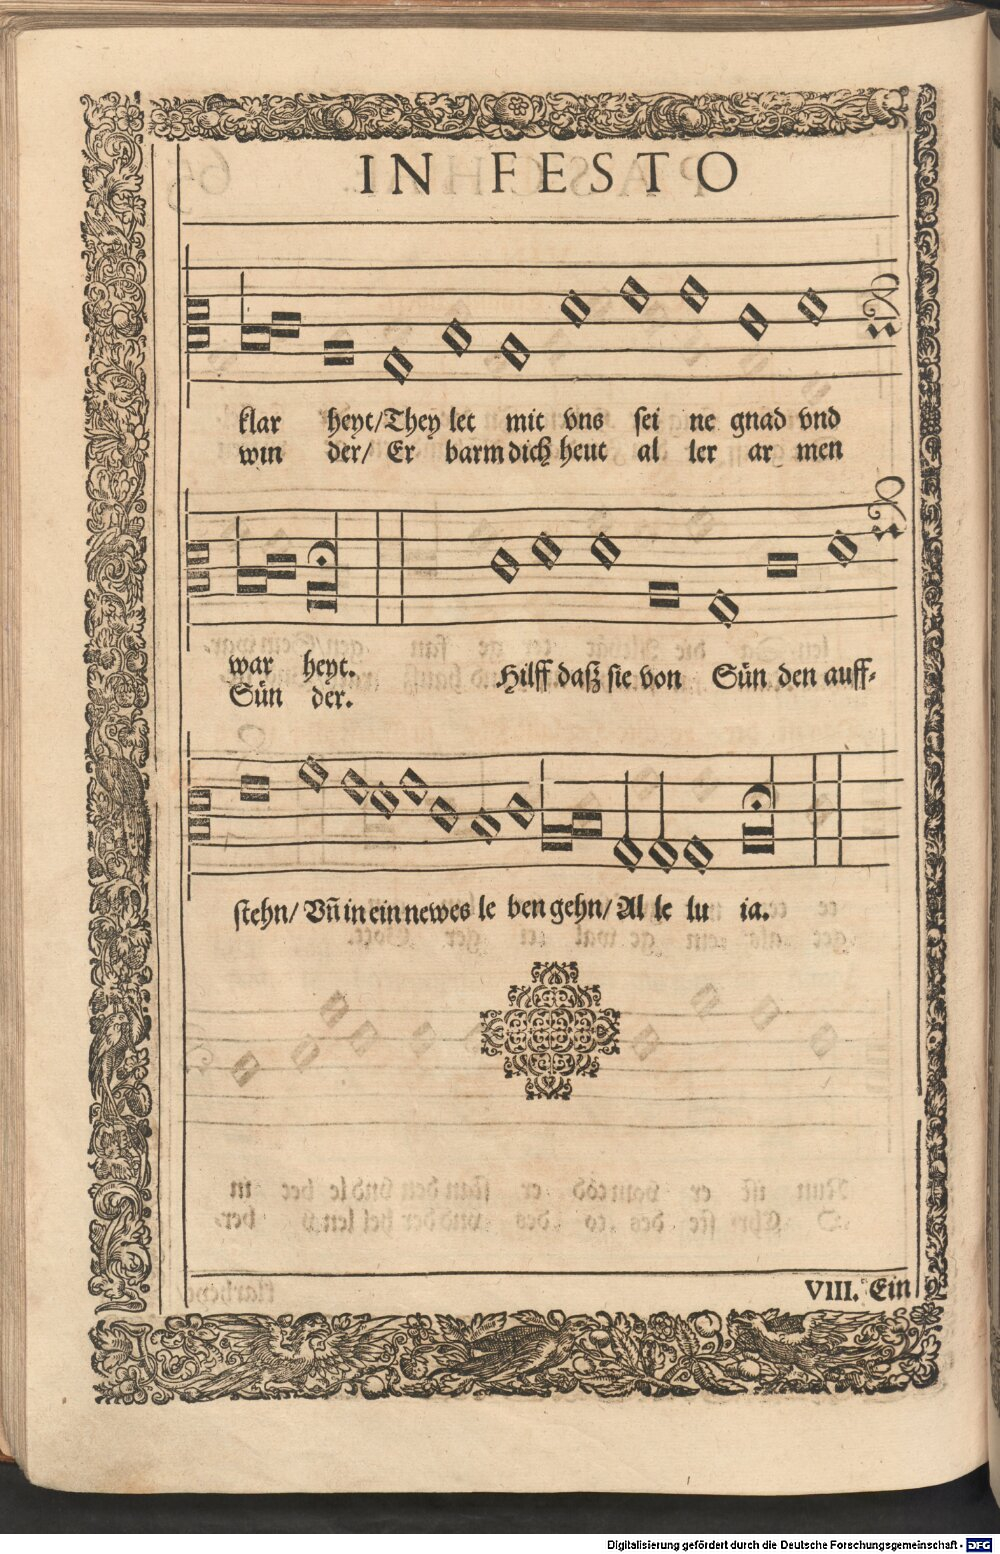 IN FESTO
klar heyt/They let mit vns sei ne gnad vnd
win der/ Er barm dich heut al ler ar men
war heyt. Hilff dasz sie von Sün den auff-
Sün der.
stehn/ Vñ in ein newes le ben gehn/ Al le lu ia.
VIII. Ein
Digitalisierung gefördert durch die Deutsche Forschungsgemeinschaft - DFG